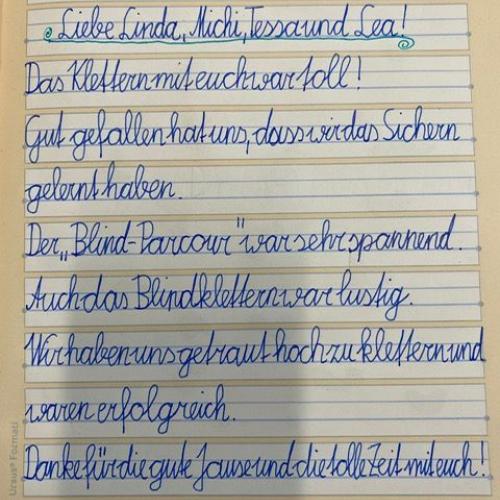 Liebe Linda, Michi, Tessa und Lea!
Das Klettern mit euch war toll!
Gut gefallen hat uns, dass wir das Sichern
gelernt haben.
Der „Blind-Parcour" war sehr spannend.
Auch das Blindklettern war lustig.
Wir haben uns getraut hoch zu klettern und
waren erfolgreich.
Danke für die gute Jause und die tolle Zeit mit euch!
Ursus® Formati